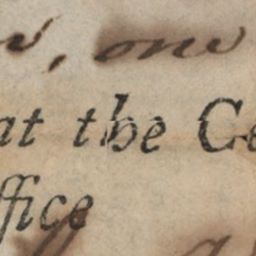 , one
at the Ce
ffice